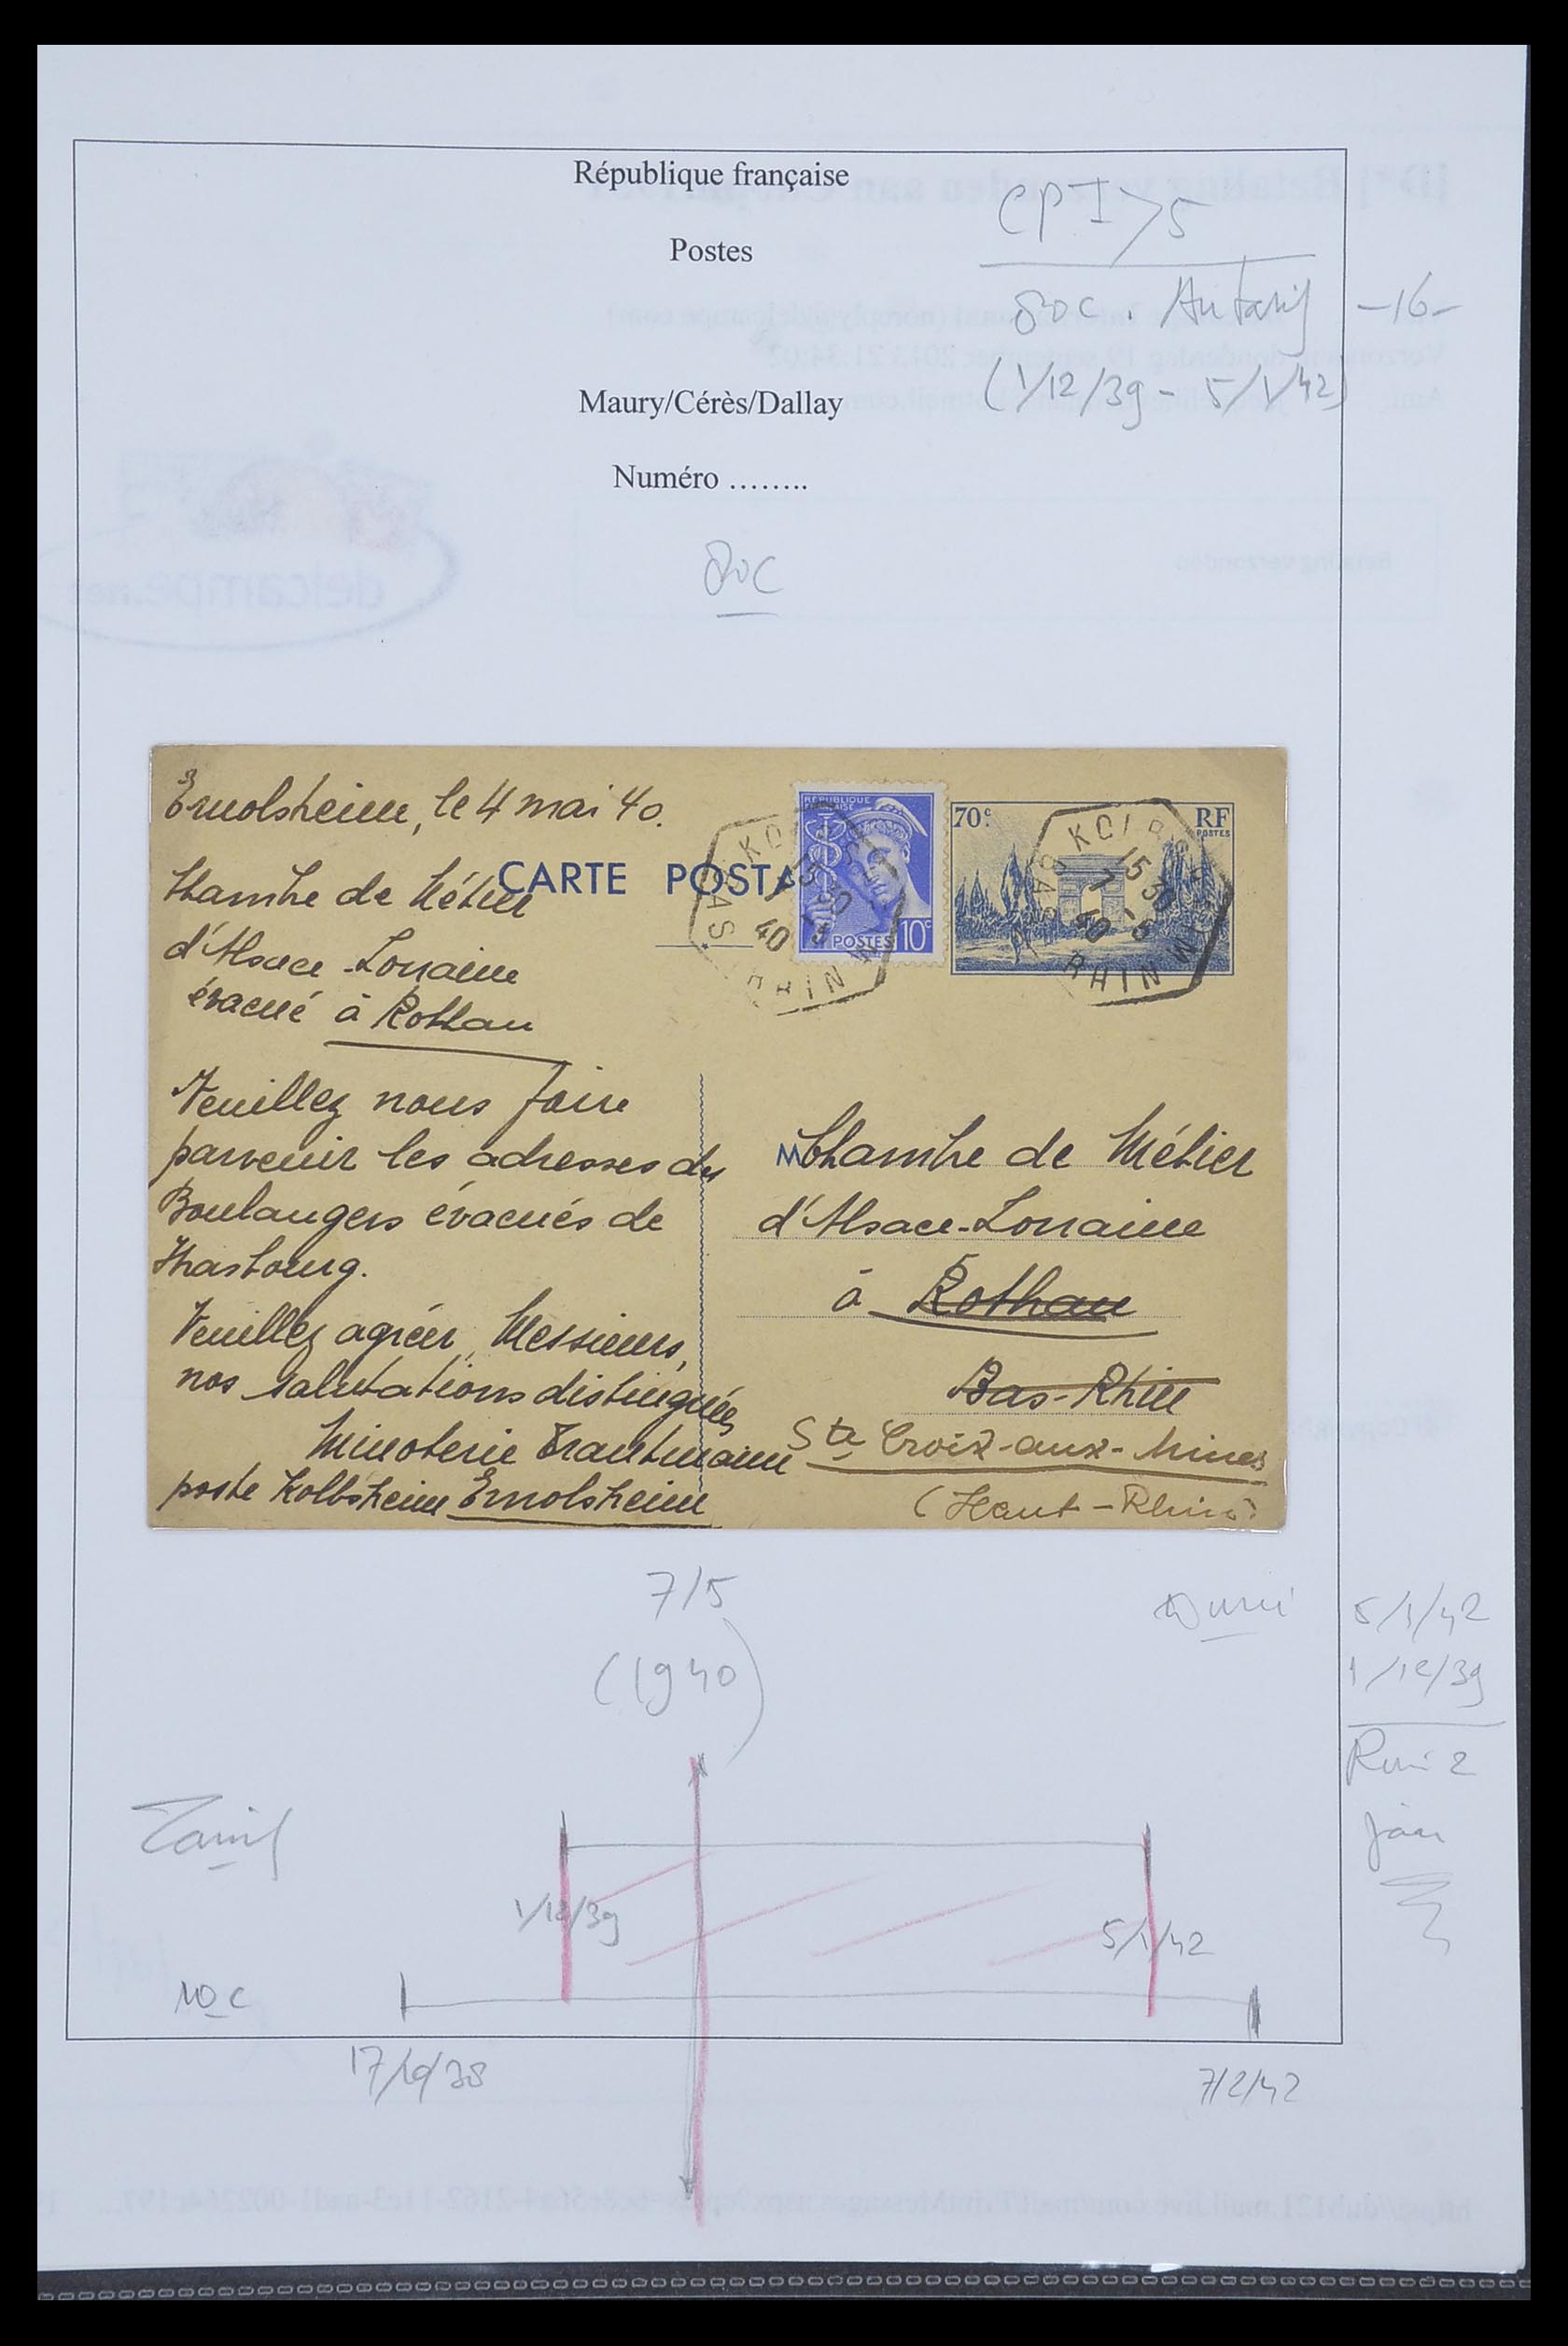 République française
Postes
Maury/Cérès/Dallay
Numéro ........
CPI > 5
80c. Au tarif
-16-
(1/12/39 - 5/1/42)
80c
Ernolsheim, le 4 mai 40.
CARTE POSTA
RÉPUBLIQUE
POSTES 10c
70c.
RF
POSTES
15 30
7 - 5
40
BAS RHIN
Chambre de Métier
d'Alsace-Lorraine
évacué à Rothau
Veuillez nous faire
parvenir les adresses des
Boulangers évacués de
Strasbourg.
Veuillez agréer, Messieurs,
nos salutations distinguées
Minoterie Trautmann
poste Kolbsheim Ernolsheim
M Chambre de Métier
d'Alsace-Lorraine
à Rothau
Bas-Rhin
Ste Croix-aux-Mines
(Haut-Rhin)
7/5
(1940)
5/1/42
1/12/39
Tarif
1/12/39
5/1/42
10c
17/10/38
7/2/42